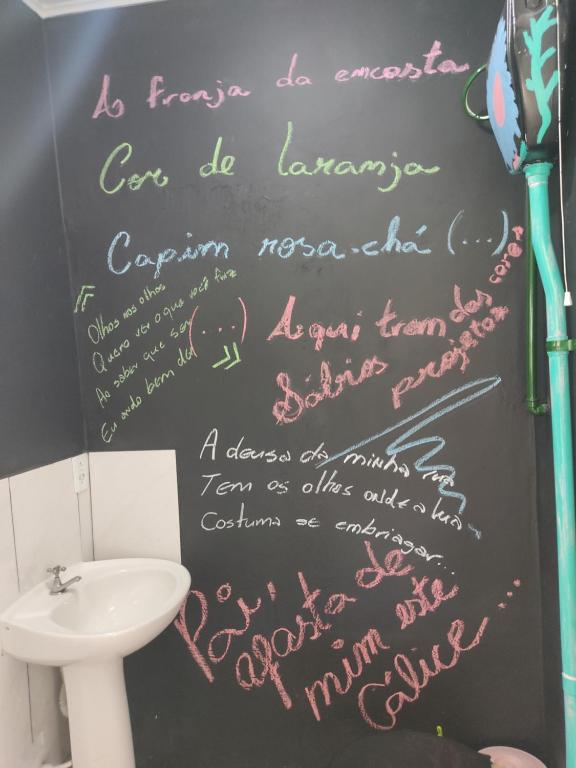 A franja da encosta
Cor de laranja
Capim rosa-chá (...)
"Olhos nos olhos
Quero ver o que você faz
Ao saber que sem
Eu ando bem de
"
(...) Aqui tram das cores
Sábios projetar
A deusa da minha rua
Tem os olhos onde a lua
Costuma se embriagar...
Pai,
afasta de
mim este
Cálice...